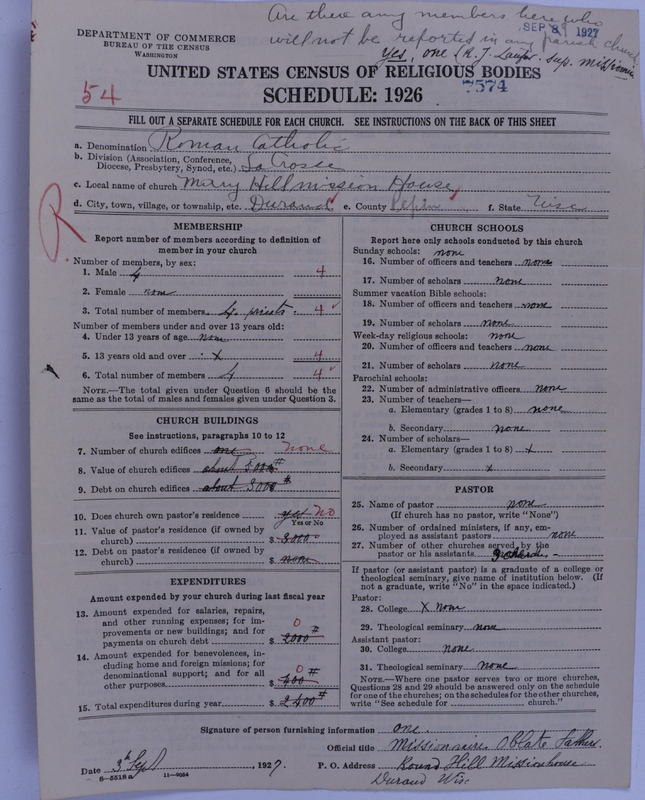 Are there any members here who
SEP 8 1927
will not be reported in any parish church
DEPARTMENT OF COMMERCE
BUREAU OF THE CENSUS
WASHINGTON
Yes, one (R. J. sup. mission
UNITED STATES CENSUS OF RELIGIOUS BODIES
54
SCHEDULE: 1926
7574
FILL OUT A SEPARATE SCHEDULE FOR EACH CHURCH. SEE INSTRUCTIONS ON THE BACK OF THIS SHEET
a. Denomination Roman Catholic
b. Division (Association, Conference,
Diocese, Presbytery, Synod, etc.) La Crosse
c. Local name of church Mary Hill mission House
d. City, town, village, or township, etc. Durand e. County Pepin f. State Wisc
R
MEMBERSHIP
Report number of members according to definition of
member in your church
Number of members, by sex:
1. Male 4 4
2. Female none
3. Total number of members 4. priests 4
Number of members under and over 13 years old:
4. Under 13 years of age none
5. 13 years old and over x 4
6. Total number of members 4 4
NOTE.—The total given under Question 6 should be
same as the total of males and females given under Question 3.
CHURCH BUILDINGS
See instructions, paragraphs 10 to 12
7. Number of church edifices one none
8. Value of church edifices about 5000#
9. Debt on church edifices about 3000#
10. Does church own pastor's residence yes No
Yes or No
11. Value of pastor's residence (if owned by
church) $ 3000
12. Debt on pastor's residence (if owned by
church) $ none
EXPENDITURES
Amount expended by your church during last fiscal year
13. Amount expended for salaries, repairs,
and other running expenses; for im-
provements or new buildings; and for
payments on church debt $ 0 2000#
14. Amount expended for benevolences, in-
cluding home and foreign missions; for
denominational support; and for all
other purposes $ 0 400#
15. Total expenditures during year $ 2400#
CHURCH SCHOOLS
Report here only schools conducted by this church
Sunday schools: none
16. Number of officers and teachers none
17. Number of scholars none
Summer vacation Bible schools:
18. Number of officers and teachers none
19. Number of scholars none
Week-day religious schools: none
20. Number of officers and teachers none
21. Number of scholars none
Parochial schools:
22. Number of administrative officers none
23. Number of teachers—
a. Elementary (grades 1 to 8) none
b. Secondary none
24. Number of scholars—
a. Elementary (grades 1 to 8) x
b. Secondary x
PASTOR
25. Name of pastor none
(If church has no pastor, write "None")
26. Number of ordained ministers, if any, em-
ployed as assistant pastors none
27. Number of other churches served by the
pastor or his assistants
If pastor (or assistant pastor) is a graduate of a college or
theological seminary, give name of institution below. (If
not a graduate, write "No" in the space indicated.)
Pastor:
28. College X none
29. Theological seminary none
Assistant pastor:
30. College none
31. Theological seminary none
NOTE.—Where one pastor serves two or more churches,
Questions 28 and 29 should be answered only on the schedule
for one of the churches; on the schedules for the other churches,
write "See schedule for church."
Signature of person furnishing information one
Official title Missionaries Oblate Fathers.
Date 3th Sept, 1927. P. O. Address Round Hill Missionhouse
8—5518 a 11—9084
Durand Wisc